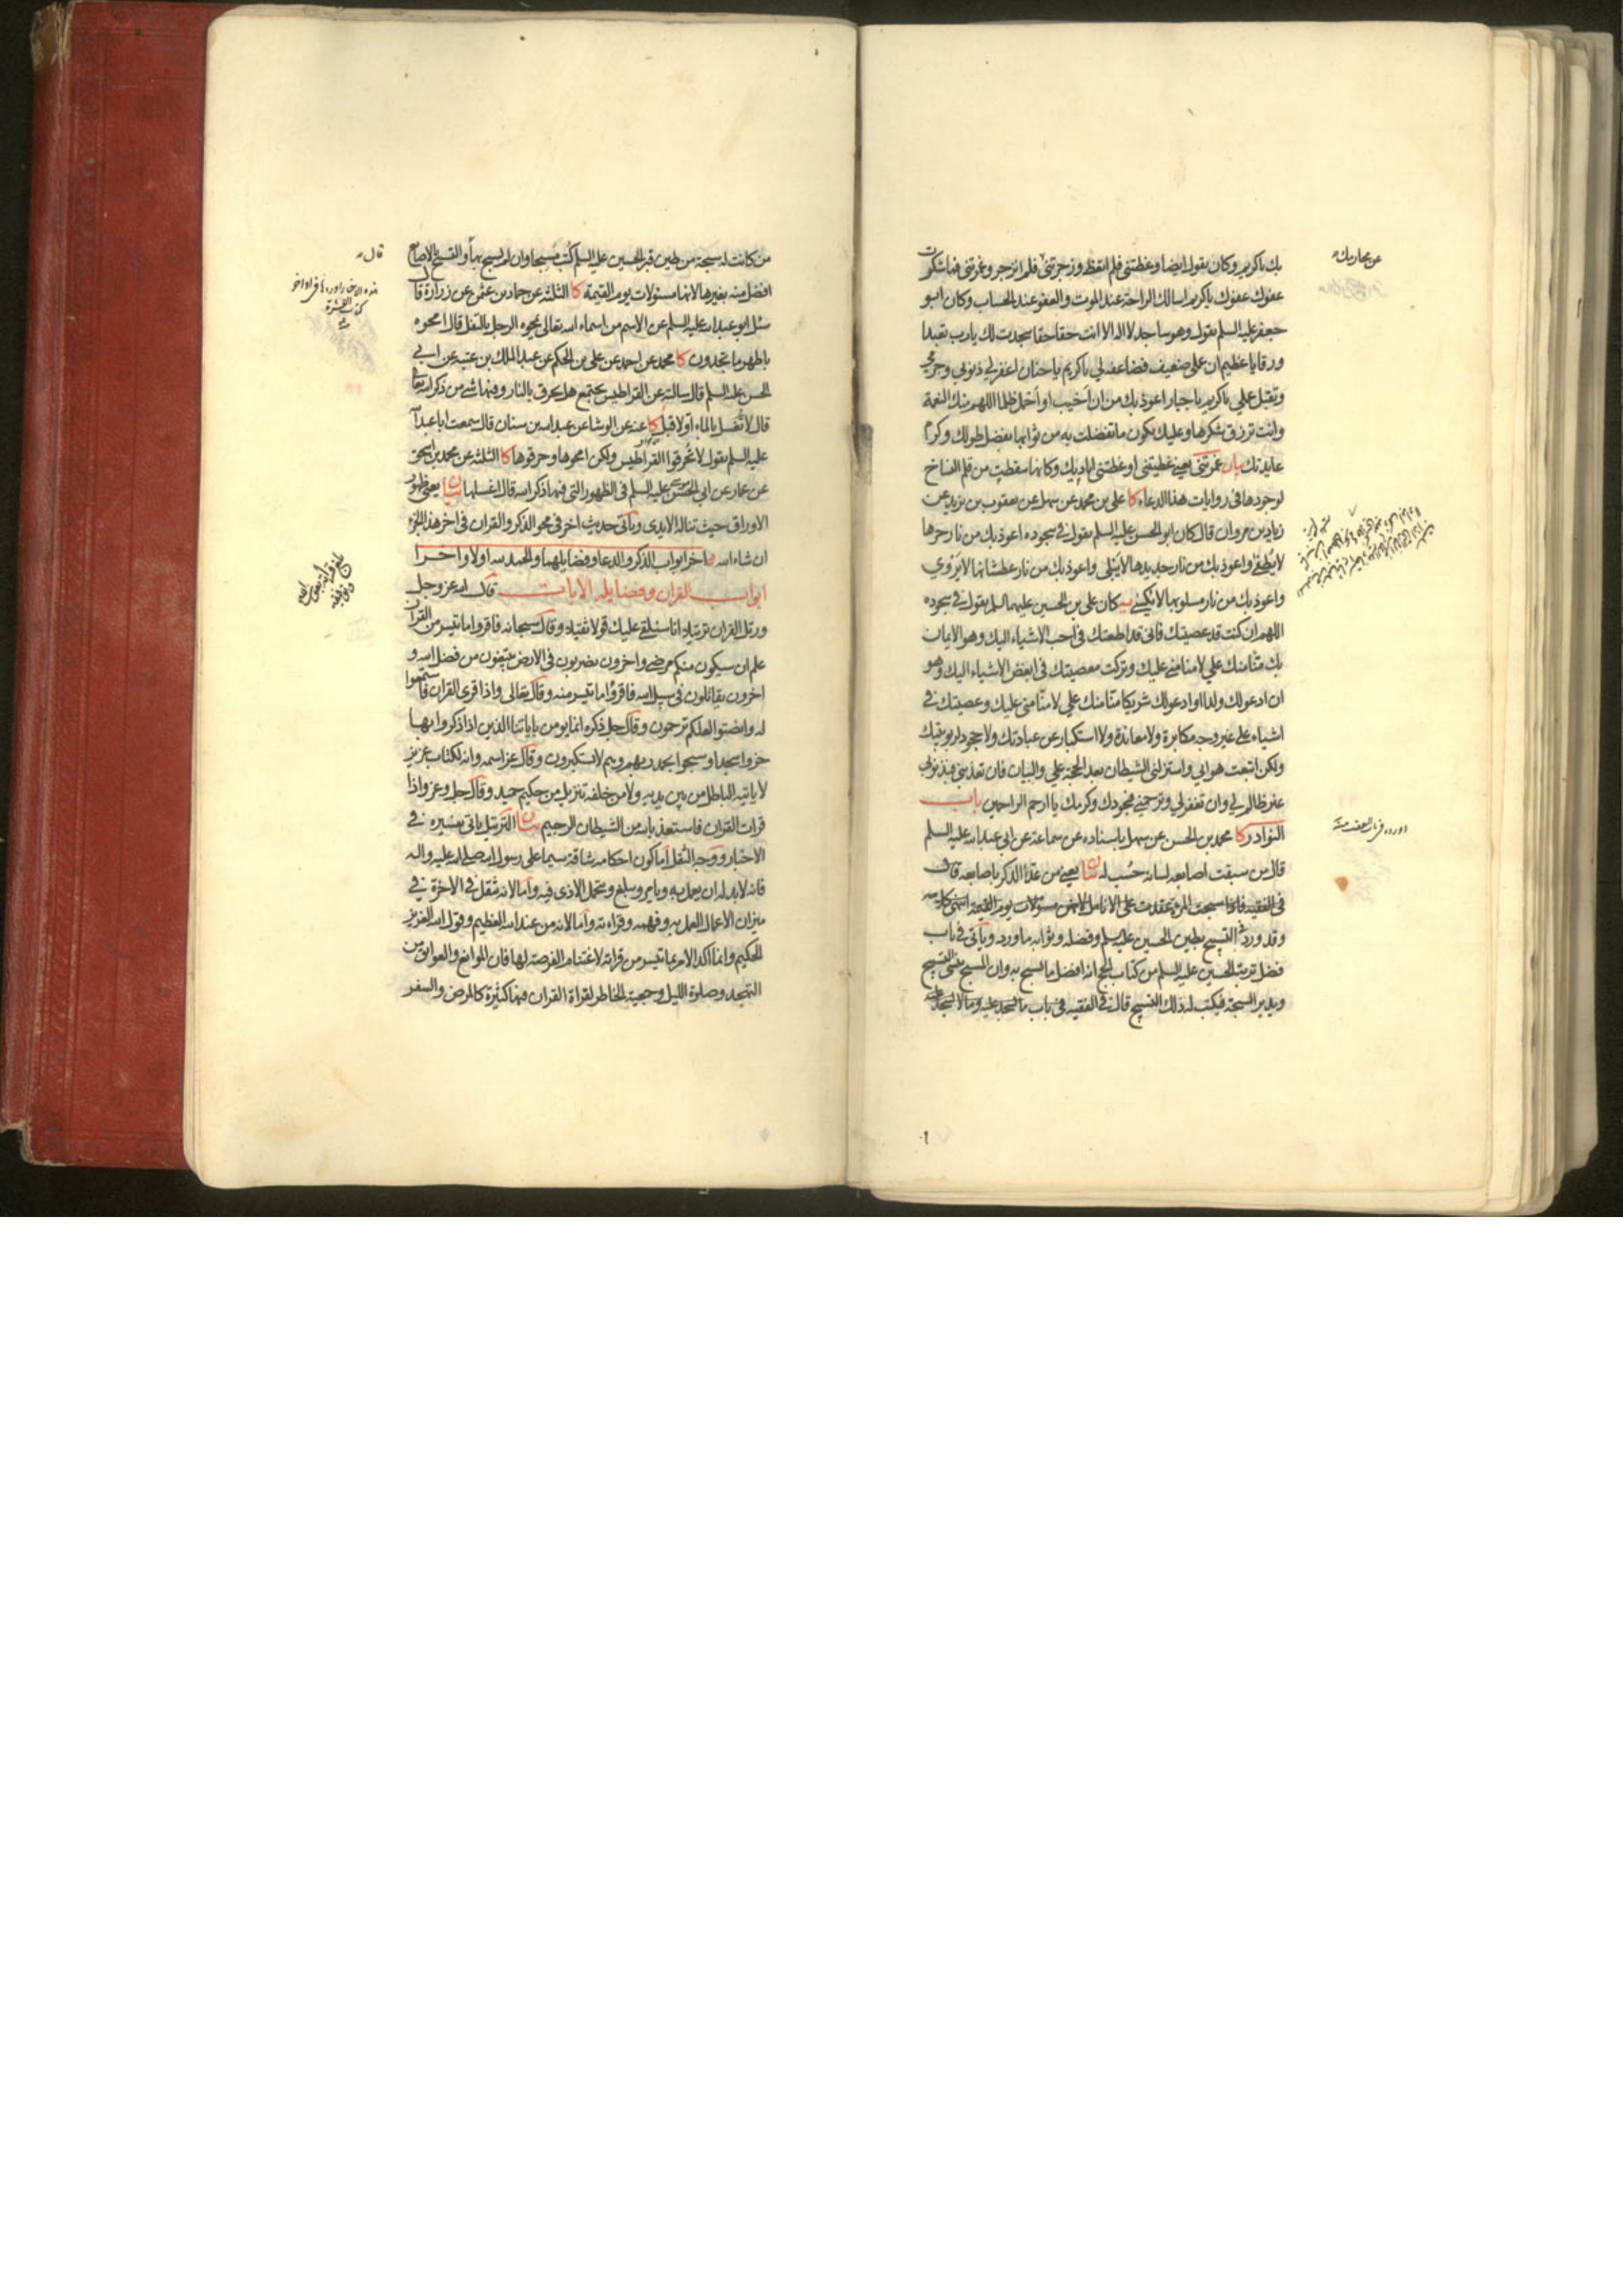 بك ياكريم وكان يقول ايضا وعظتني فلم اتعظ وزجرتني فلم انزجر وغمرتني فما شكرت
عفوك عفوك ياكريم اسالك الراحة عند الموت والعفو عند الحساب وكان ابو
جعفر عليه السلم يقول وهو ساجد لااله الا انت حقا حقا سجدت لك يارب تعبدا
ورقا ياعظيم ان عملي ضعيف فضاعفه لي ياكريم ياحنان اغفر لي ذنوبي وجرمي
وتقبل عملي ياكريم ياجبار اعوذ بك من ان اخيب او احمل ظلما اللهم منك النعمة
وانت ترزق شكرها وعليك يكون ماتفضلت به من ثوابها بفضل طولك وكرم
عايدتك بيان غمرتني يعني غطيتني او غطتني اياديك وكانها سقطت من قلم النساخ
لوجودها في روايات هذا الدعاء كا علي بن محمد عن سهل عن يعقوب بن يزيد عن
زياد بن مروان قال كان ابو الحسن عليه السلم يقول في سجوده اعوذ بك من نار حرها
لايطفى واعوذ بك من نار جديدها لايبلى واعوذ بك من نار عطشانها لايروي
واعوذ بك من نار مسلوبها لايكسى يه كان علي بن الحسين عليهما السلم يقول في سجوده
اللهم ان كنت قد عصيتك فاني قد اطعتك في احب الاشياء اليك وهو الايمان
بك منّا منك علي لامنا مني عليك وتركت معصيتك في ابغض الاشياء اليك وهو
ان ادعو لك ولدا او ادعو لك شريكا منّا منك علي لامنّا مني عليك وعصيتك في
اشياء على غير وجه مكابرة ولامعاندة ولااستكبار عن عبادتك ولاجحود لربوبيتك
ولكن اتبعت هوايي واستزلني الشيطان بعد الحجة علي والبيان فان تعذبني فبذنوبي
غير ظالم لي وان تغفر لي وترحمني فبجودك وكرمك يا ارحم الراحمين باب
النوادر كا محمد بن الحسن عن سهل باسناده عن سماعة عن ابي عبدالله عليه السلم
قال من سبقت اصابعه لسانه حُسب له بيان يعني من عدّ الذكر باصابعه قال
في الفقيه فاذا سبحت المرءة عقدت على الانامل لانهن مسئولات يوم القيمة انتهى كلامه
وقد ورد في التسبيح بطين الحسين عليه السلم وفضله وثوابه ما ورد وياتي في باب
فضل تربة الحسين عليه السلم من كتاب الحج انه افضل ما يسبح به وان المسبح ينسى التسبيح
ويدير السبحة فيكتب له ذلك التسبيح قال في الفقيه في باب ما يسجد عليه وما لايسجد عليه
من كانت له سبحة من طين قبر الحسين عليه السلم كُتب مسبحا وان لم يسبح بها والتسبيح بالاصابع
افضل منه بغيرها لانها مسئولات يوم القيمة كا الثلثة عن حماد بن عثمن عن زرارة قال
سئل ابو عبدالله عليه السلم عن الاسم من اسماء الله تعالى يمحوه الرجل بالتفل قال امحوه
باطهر ما تجدون كا محمد عن احمد عن علي بن الحكم عن عبد الملك بن عتبة عن ابي
الحسن عليه السلم قال سالته عن القراطيس يجتمع هل يحرق بالنار وفيها شئ من ذكر الله تعالى
قال لا تُغسل بالماء اولا قبل كا عنه عن الوشا عن عبدالله بن سنان قال سمعت اباعبدالله
عليه السلم يقول لا تُحرقوا القراطيس ولكن امحوها وحرقوها كا الثلثة عن محمد بن اسحق
عن عمار عن ابي الحسن موسى عليه السلم في الظهور التي فيها ذكر الله قال اغسلها بيان يعني ظهور
الاوراق حيث تناله الايدي وياتي حديث اخر في محو الذكر والقران في اخر هذا الجزء
ان شاء الله اخر ابواب الذكر والدعا وفضايلهما والحمد لله اولا واخرا
ابواب القران وفضايله الايات قال الله عز وجل
ورتل القران ترتيلا انا سنلقي عليك قولا ثقيلا وقال سبحانه فاقروا ما تيسر من القران
علم ان سيكون منكم مرضى واخرون يضربون في الارض يبتغون من فضل الله و
اخرون يقاتلون في سبيل الله فاقرؤا ما تيسر منه وقال تعالى واذا قرئ القران فاستمعوا
له وانصتوا لعلكم ترحمون وقال جل ذكره انما يومن باياتنا الذين اذا ذكروا بها
خروا سجدا وسبحوا بحمد ربهم وهم لا يستكبرون وقال عز اسمه وانه لكتاب عزيز
لا ياتيه الباطل من بين يديه ولا من خلفه تنزيل من حكيم حميد وقال جل وعز واذا
قرات القران فاستعذ بالله من الشيطان الرجيم بيان الترتيل ياتي تفسيره في
الاخبار ووجه الثقل اما كون احكامه شاقة سيما على رسول الله صلى الله عليه واله
فانه لابد له ان يعمل به ويامر ويبلغ ويتحمل الاذى فيه واما لانه ثقل في الاخرة في
ميزان الاعمال العمل به وفهمه وقراءته واما لانه من عند الله العظيم وقول الله العزيز
الحكيم وانما اكد الامر بما تيسر من قراته لاغتنام الفرصة لها فان الموانع والعوايق من
التهجد وصلوة الليل وجمعية الخاطر لقراة القران فيها كثيرة كالمرض والسفر
قال